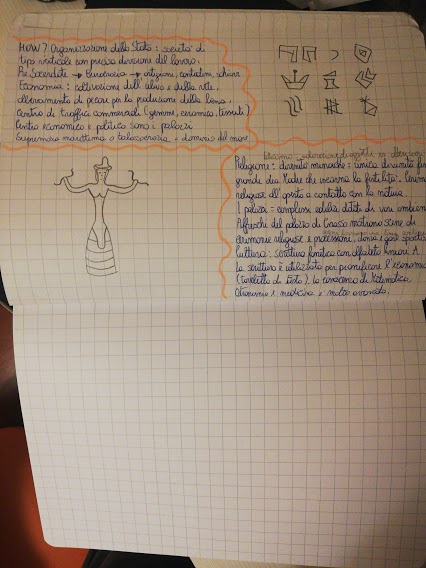 HOW? Organizzazione dello Stato: società di
tipo verticale con precisa divisione del lavoro.
Re Sacerdote → burocrazia → artigiani, contadini, schiavi
Economia: coltivazione dell'ulivo e della vite,
allevamento di pecore per la produzione della lana.
Centro di traffici commerciali (gemme, ceramica, tessuti)
Centro economico e politico sono i palazzi
Supremazia marittima o talassocrazia = dominio del mare
Religione: divinità minoiche: unica divinità
grande dea Madre che incarna la fertilità.
religiose all'aperto a contatto con la natura
I palazzi: complessi edilizi dotati di vari
Affreschi del palazzo di Cnosso mostrano scene di
cerimonie religiose e processioni, danza e gare
Cultura: scrittura fonetica con alfabeto lineare A.
La scrittura è utilizzata per pianificare l'economia
(tavoletta di Festo). la conoscenza di Matematica
Astronomia e medicina è molto avanzata.